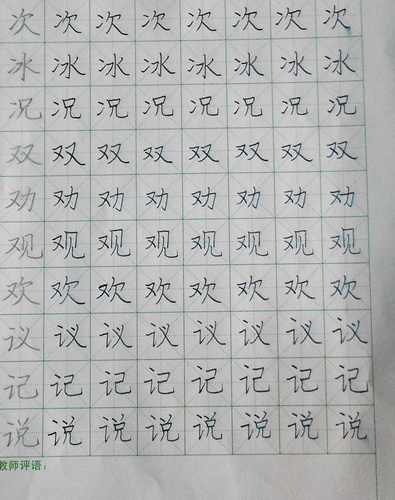 次次次次次次次次
冰冰冰冰冰冰冰冰
况况况况况况况况
双双双双双双双双
劝劝劝劝劝劝劝劝
观观观观观观观观
欢欢欢欢欢欢欢欢
议议议议议议议议
记记记记记记记记
说说说说说说说说
教师评语：